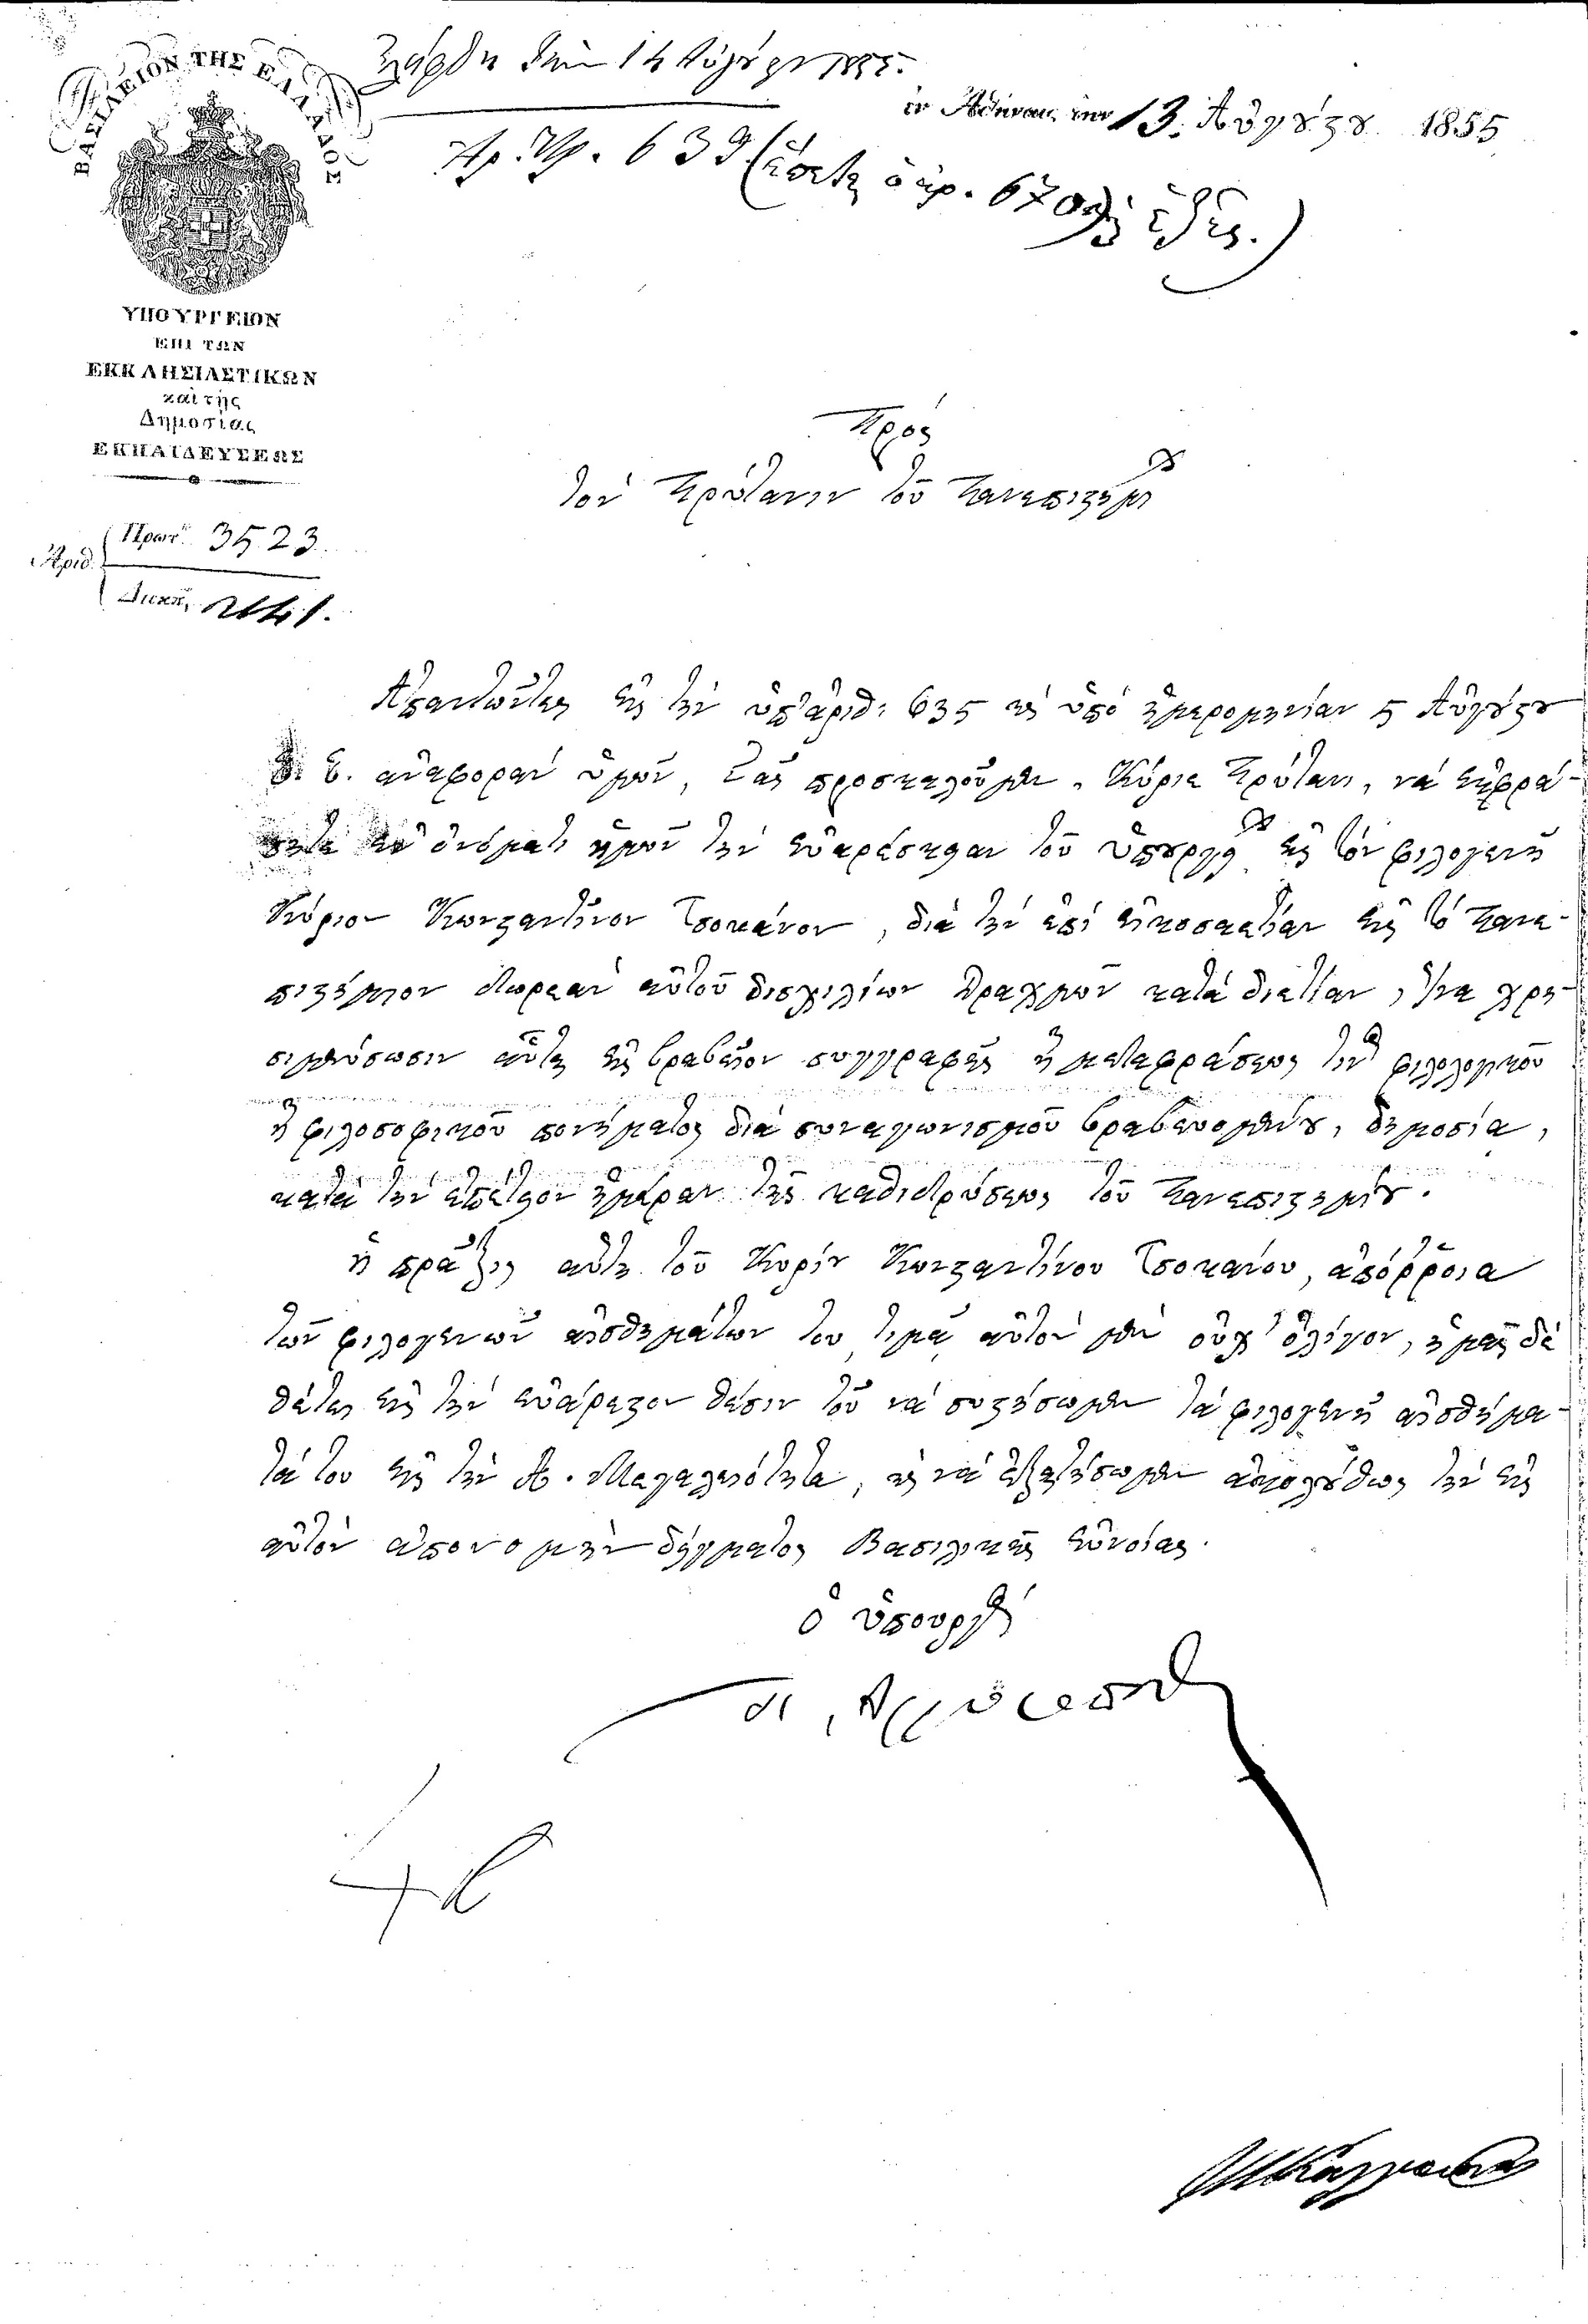 ΒΑΣΙΛΕΙΟΝ ΤΗΣ ΕΛΛΑΔΟΣ
ἐλήφθη τὴν 14 Αὐγούςου 1855.
ἐν Ἀθήναις τὴν 13. Αὐγούςου 1855
Ἀρ. Πρ. 639 (ἕπεται ὁ ἀρ. 670 ἑξῆς.)
ΥΠΟΥΡΓΕΙΟΝ
ΕΠΙ ΤΩΝ
ΕΚΚΛΗΣΙΑΣΤΙΚΩΝ
καὶ τῆς
Δημοσίας
ΕΚΠΑΙΔΕΥΣΕΩΣ
Πρὸς
τὸν Πρύτανιν τοῦ Πανεπιςημίου
Ἀριθ.
Πρωτ. 3523.
Διεκπ.
Ἀπαντῶντες εἰς τὴν ὑπ' ἀριθ: 635 καὶ ὑπὸ ἡμερομηνίαν 5 Αὐγούςου
ἀναφορὰν ὑμῶν, Σᾶς προσκαλοῦμεν, Κύριε Πρύτανι, νὰ ἐκφρά-
σητε ἐν ὀνόματι ἡμῶν τὴν εὐαρέσκειαν τοῦ ὑπουργείου εἰς τὸν φιλογενῆ
Κύριον Κωνςαντῖνον Τσοκάνον, διὰ τὴν ἐπὶ εἰκοσαετίαν εἰς τὸ Πανε-
πιςήμιον δωρεὰν αὐτοῦ δισχιλίων δραχμῶν κατὰ διετίαν, ἵνα χρη-
σιμεύσωσιν αὗται εἰς βραβεῖον συγγραφῆς ἢ μεταφράσεως τινὸς φιλολογικοῦ
ἢ φιλοσοφικοῦ πονήματος διὰ συναγωνισμοῦ βραβευομένου, δημοσίᾳ,
κατὰ τὴν ἐπέτειον ἡμέραν τῆς καθιδρύσεως τοῦ Πανεπιςημίου.
ἡ πρᾶξις αὕτη τοῦ Κυρίου Κωνςαντίνου Τσοκάνου, ἀπόῤῥοια
τῶν φιλογενῶν αἰσθημάτων του, τιμᾷ αὐτὸν μὲν οὐχ' ὀλίγον, ἡμᾶς δὲ
θέτει εἰς τὴν εὐάρεςον θέσιν τοῦ νὰ συςήσωμεν τὰ φιλογενῆ αἰσθήμα-
τά του εἰς τὴν Α. Μεγαλειότητα, καὶ νὰ ἐξαιτήσωμεν ἀκολούθως τὴν εἰς
αὐτὸν ἀπονομὴν δείγματος Βασιλικῆς εὐνοίας.
ὁ ὑπουργὸς